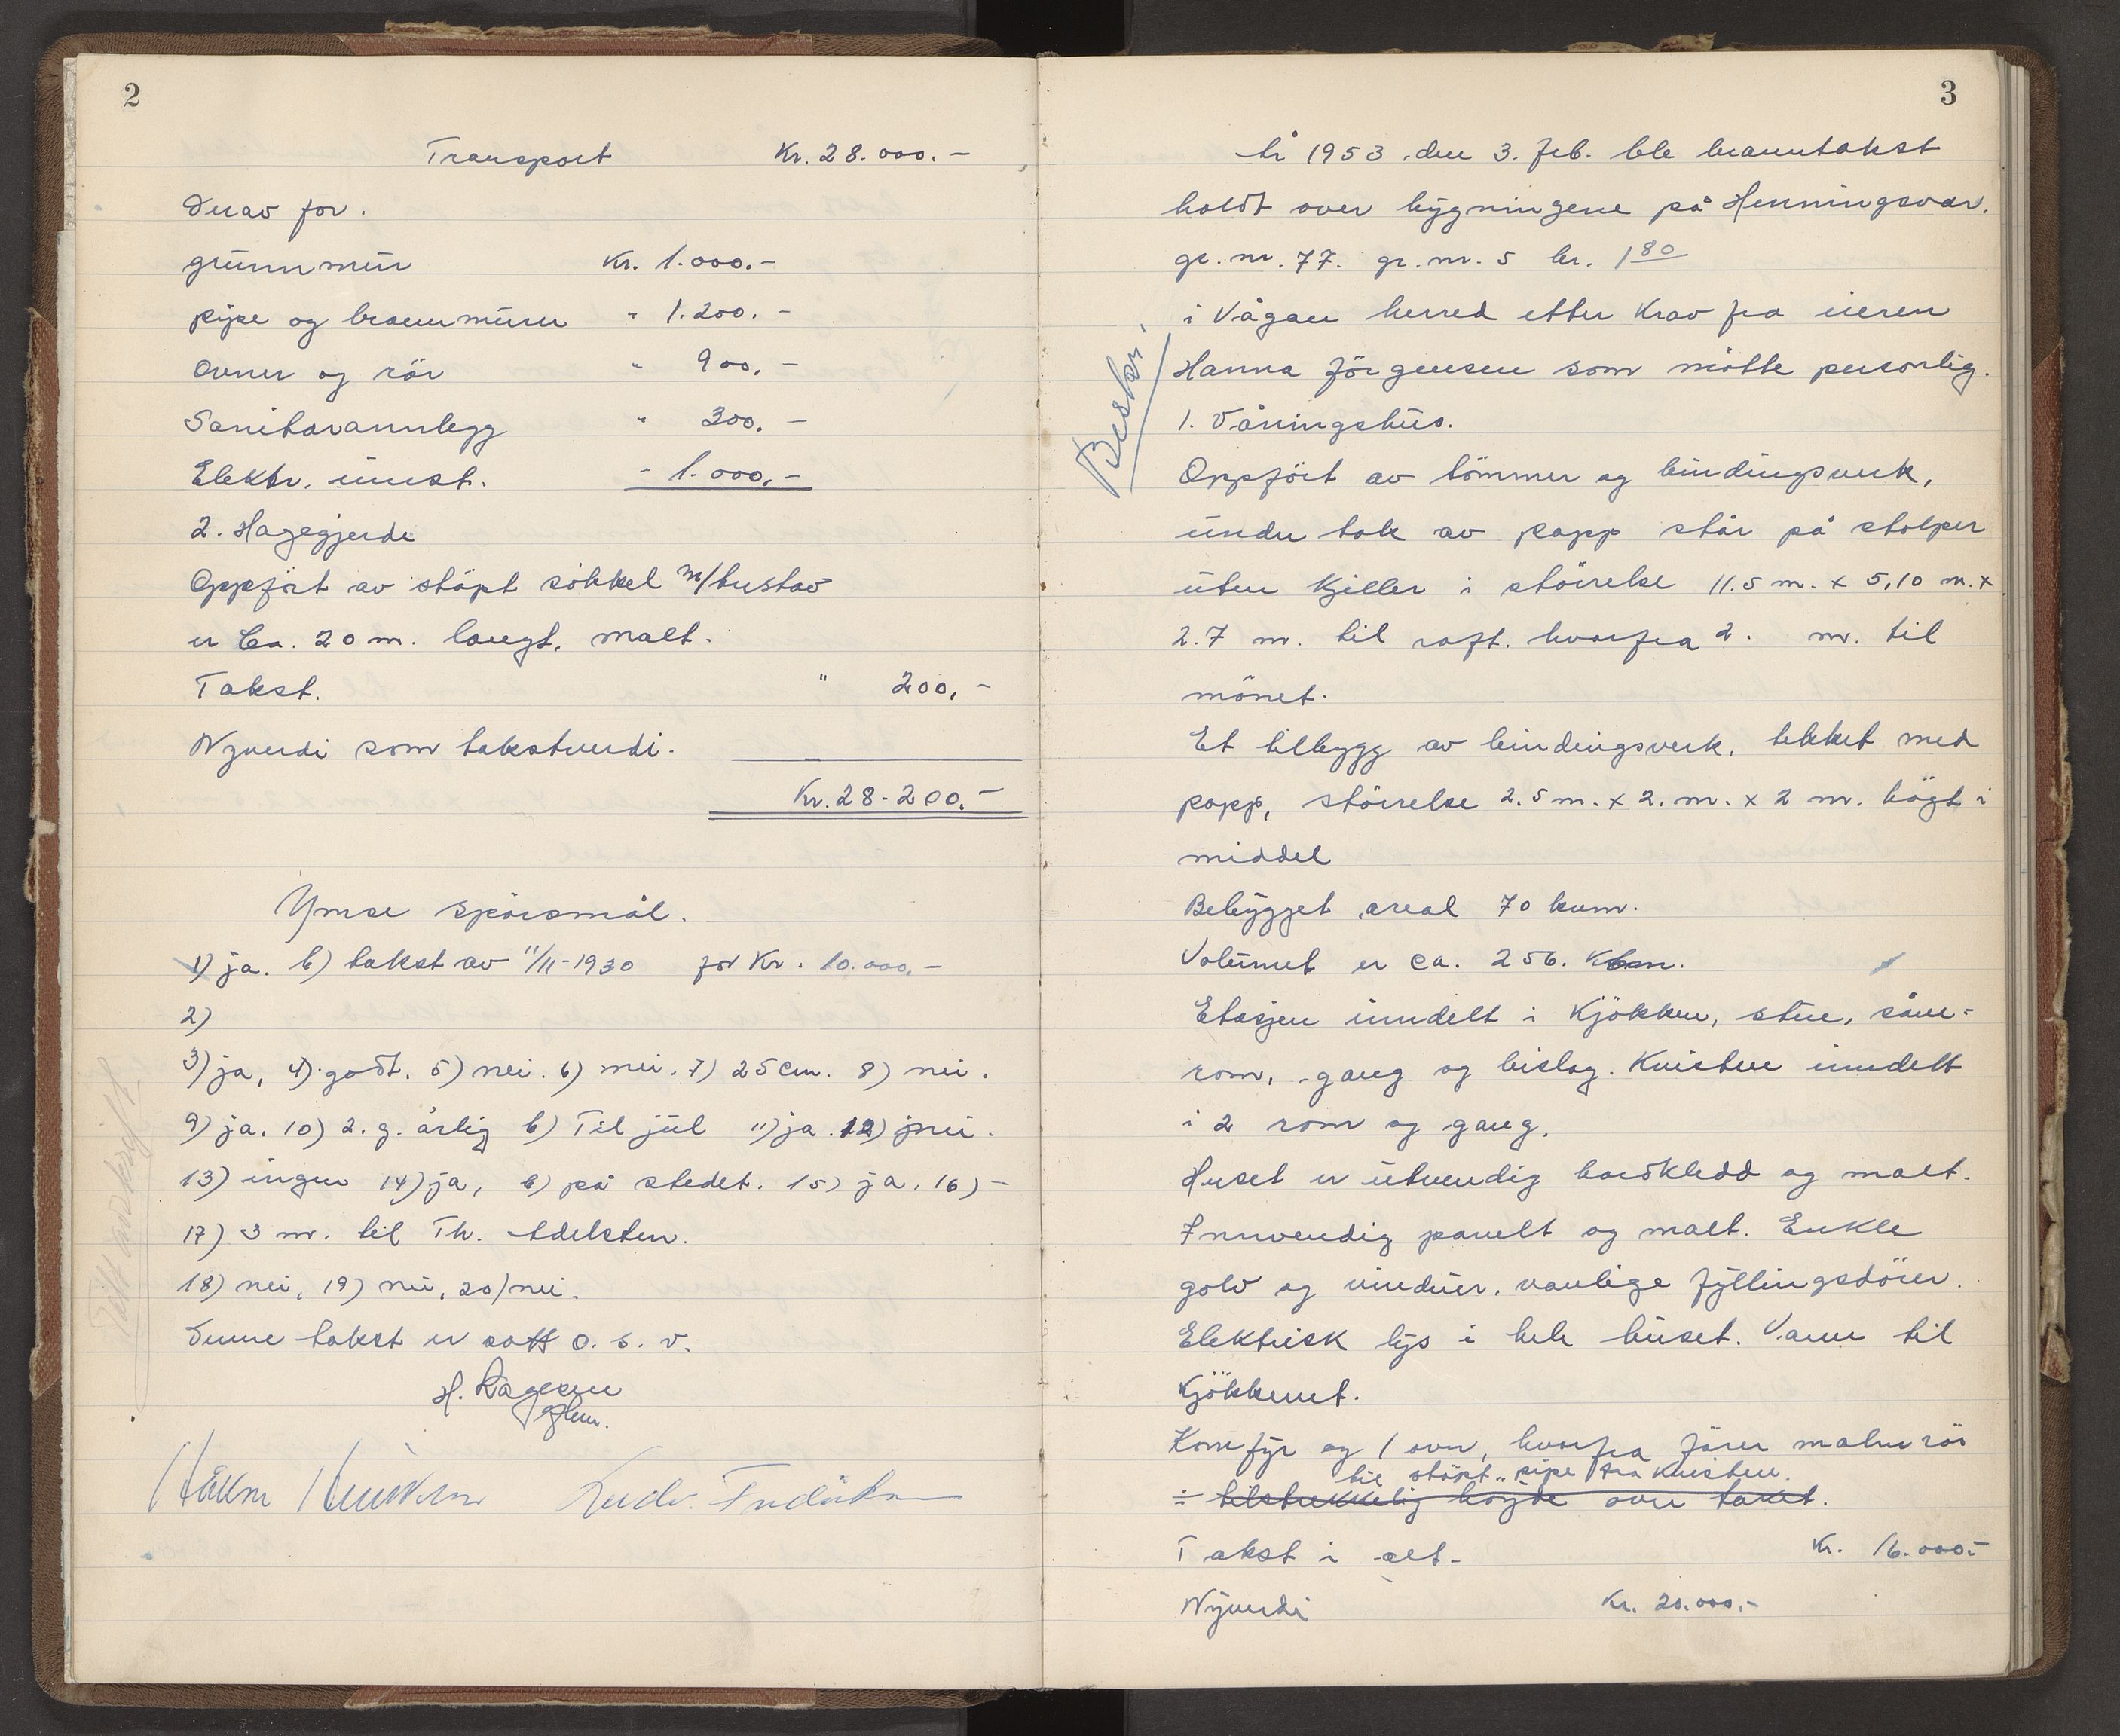 2
Transport Kr. 28.000.-
Derav for.
grunnmur Kr. 1.000.-
pipe og brannmurer " 1.200.-
Ovner og rör " 900,-
Sanitæranlegg " 300.-
Elektr. innst. - 1.000,-
2. Hagegjerde
Oppfört av stöpt sokkel m/bustav
er Ca. 20 m. langt, malt.
Takst. " 200,-
Nyverdi som takstverdi.
Kr. 28-200.-
Ymse spörsmål.
1) ja. b) takst av 11/11-1930 for Kr. 10.000,-
2)
3) ja, 4) godt. 5) nei. 6) nei. 7) 25 cm. 8) nei.
9) ja. 10) 2. g. årlig b) Til jul 11) ja. 12) nei.
13) ingen 14) ja, b) på stedet. 15) ja. 16) -
17) 3 m. til Th. Adelsten.
18) nei, 19) nei, 20) nei.
Denne takst er satt o. s. v.
H. Ragesen
3
År 1953 den 3. feb. ble branntakst
holdt over bygningene på Henningsvær.
gr. nr. 77. gr. nr. 5 br. 180
i Vågan herred etter Krav fra eieren
Hanna Jörgensen som møtte personlig.
Beskr.
1. Våningshus.
Oppfört av tömmer og bindingsverk,
under tak av papp står på stolper
uten Kjeller i störrelse 11.5 m. x 5,10 m. x
2.7 m. til raft. hvorfra 2. m. til
mönet.
Et tilbygg av bindingsverk. tekket med
papp, störrelse 2.5 m. x 2. m. x 2 m. högt i
middel
Bebygget areal 70 kvm.
Volumet er ca. 256. Kbm.
Etasjen inndelt i Kjökken, stue, såve-
rom, gang og bislag. Kvisten inndelt
i 2 rom og gang.
Huset er utvendig bordkledd og malt.
Innvendig panelt og malt. Enkle
golv og vinduer, vanlige fyllingsdörer.
Elektrisk lys i hele huset. Vann til
Kjökkenet.
Komfyr og 1 ovn, hvorfra förer malmrör
til stöpt pipe fra Kvisten.
÷ tilstrekkelig höyde over taket.
Takst i alt- Kr. 16.000.-
Nyverdi Kr. 20.000,-